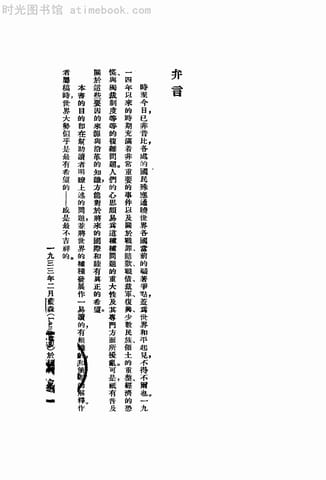 时光图书馆 - atimebook.com
弁言
時至今日,已非昔比,各處的國民殊應通曉世界各國當前的顯著爭點,蓋爲世界和平起見,不得不爾也。一九
一四年以來的時期充滿着非常重要的事件以及關於戰罪、賠款、戰債、裁軍、復興、少數民族、領土的重整、經濟的恐
慌與獨裁制度等等的複雜問題。人們的心思頗易爲這種種問題的重大性及其專門方面所擾亂,可是祇有普及
關於這些要因的來源與沿革的知識,方能對於將來的國際和睦有眞正的希望。
本書的目的卽在幫助讀者明瞭上述的問題,並將世界的種種發展作一易讀的,有
解釋。作
者屬稿時世界大勢似乎是最有希望的——或是最不吉祥的。
一九三三年二月藍森(
)於